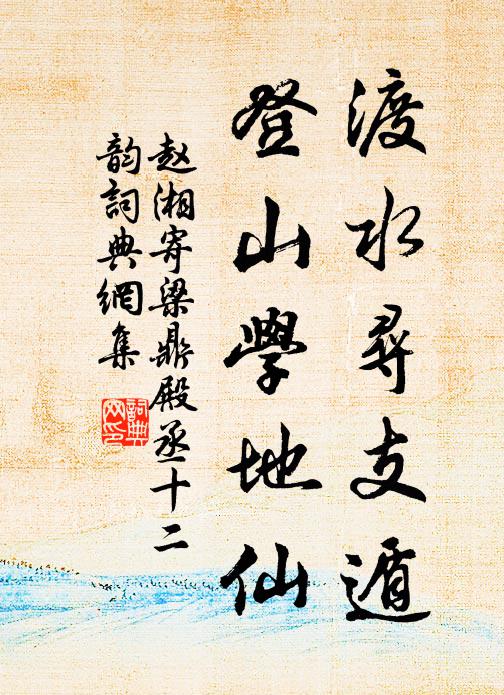 渡水尋支遁
登山學地仙
赵湘寄梁鼎殿丞十二
韵詞典網集
詞典
网印